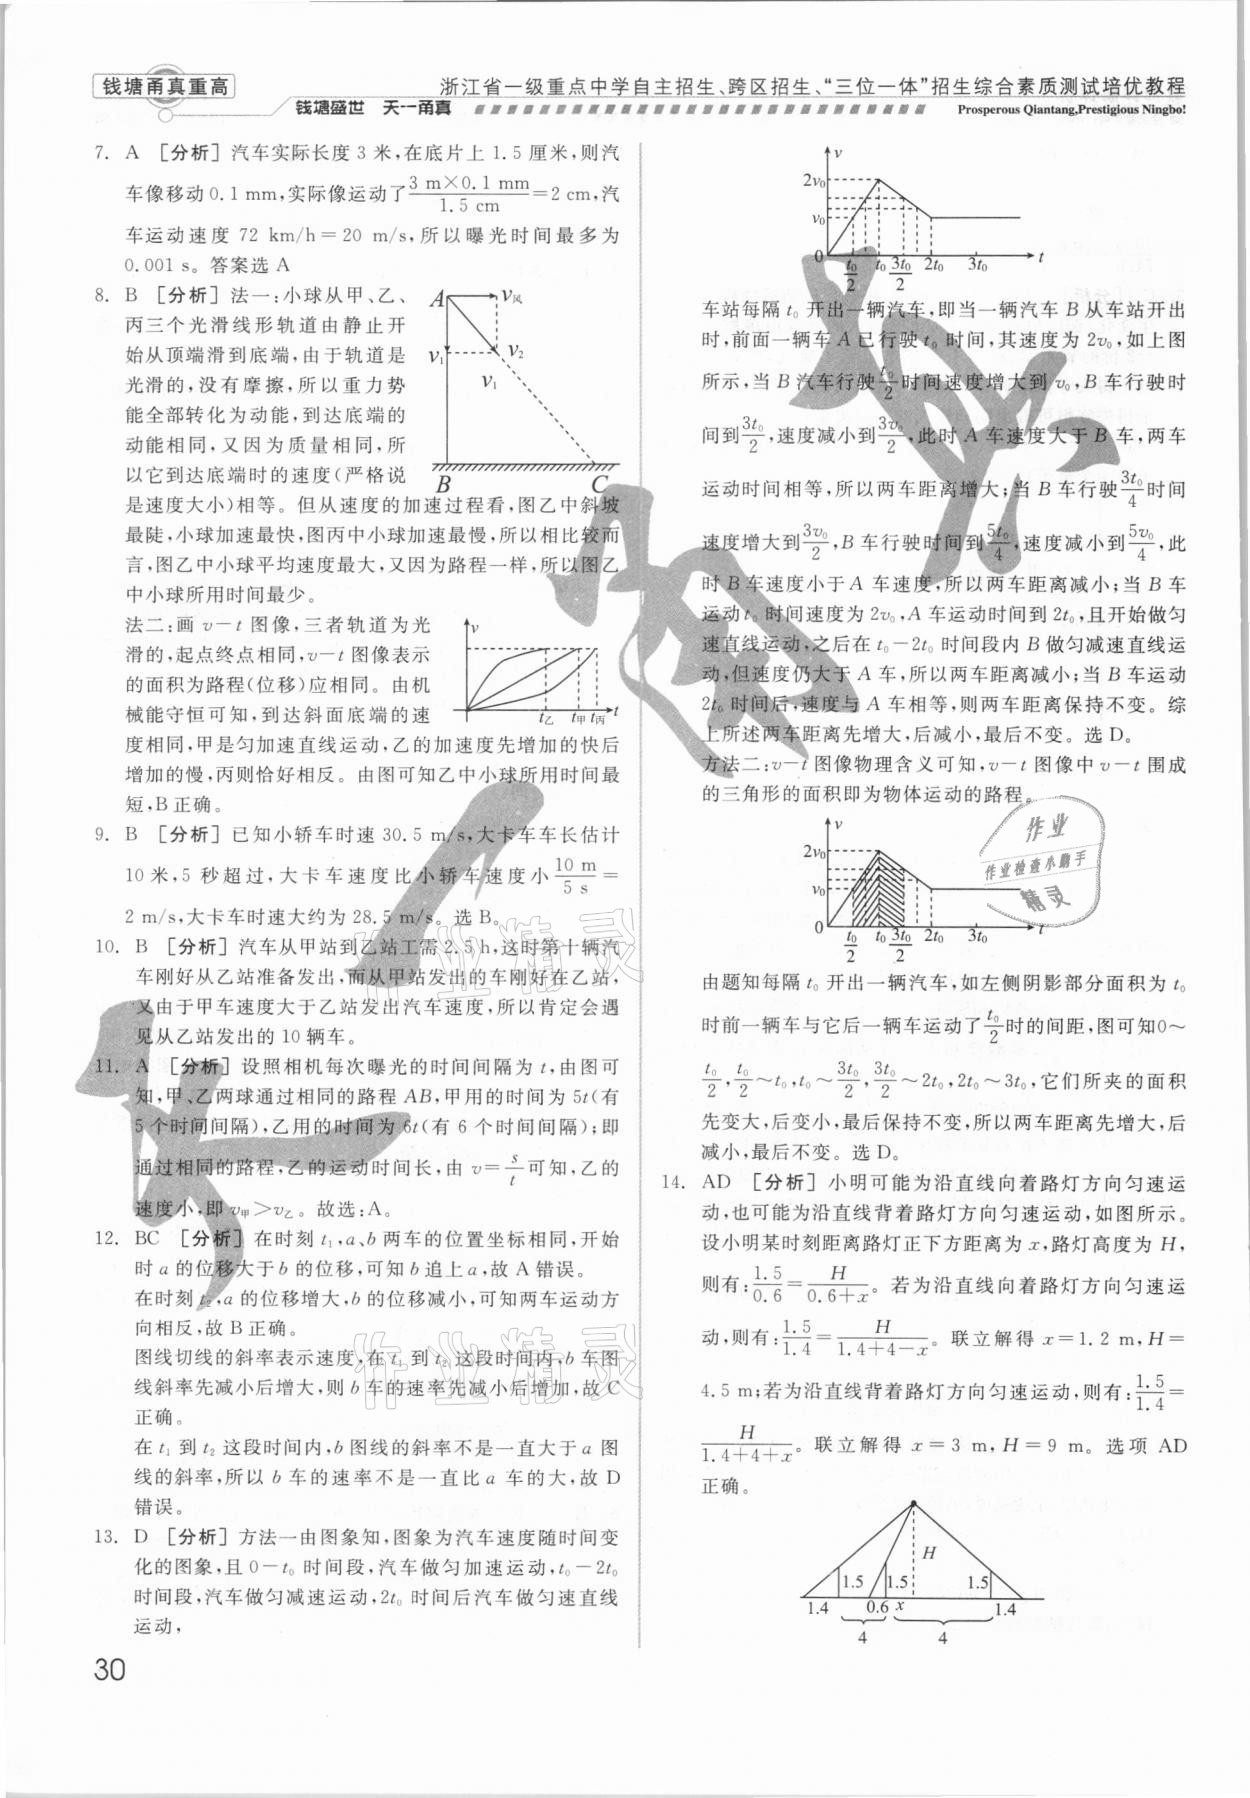 钱塘甬真重高
浙江省一级重点中学自主招生、跨区招生、“三位一体”招生综合素质测试培优教程
钱塘盛世 天一甬真
Prosperous Qiantang,Prestigious Ningbo!
7. A [分析]汽车实际长度3米,在底片上1.5厘米,则汽
车像移动0.1 mm,实际像运动了(3 m×0.1 mm)/(1.5 cm)=2 cm,汽
车运动速度 72 km/h=20 m/s,所以曝光时间最多为
0.001 s。答案选A
8. B [分析]法一:小球从甲、乙、
丙三个光滑线形轨道由静止开
始从顶端滑到底端,由于轨道是
光滑的,没有摩擦,所以重力势
能全部转化为动能,到达底端的
动能相同,又因为质量相同,所
以它到达底端时的速度(严格说
是速度大小)相等。但从速度的加速过程看,图乙中斜坡
最陡,小球加速最快,图丙中小球加速最慢,所以相比较而
言,图乙中小球平均速度最大,又因为路程一样,所以图乙
中小球所用时间最少。
A v风
v₁ v₂
v₁
B C
法二:画v-t图像,三者轨道为光
滑的,起点终点相同,v-t图像表示
的面积为路程(位移)应相同。由机
械能守恒可知,到达斜面底端的速
度相同,甲是匀加速直线运动,乙的加速度先增加的快后
增加的慢,丙则恰好相反。由图可知乙中小球所用时间最
短,B正确。
v
t乙 t甲 t丙 t
9. B [分析]已知小轿车时速30.5 m/s,大卡车车长估计
10米,5秒超过,大卡车速度比小轿车速度小10 m/5 s=
2 m/s,大卡车时速大约为28.5 m/s。选B。
10. B [分析]汽车从甲站到乙站工需2.5 h,这时第十辆汽
车刚好从乙站准备发出,而从甲站发出的车刚好在乙站,
又由于甲车速度大于乙站发出汽车速度,所以肯定会遇
见从乙站发出的10辆车。
11. A [分析]设照相机每次曝光的时间间隔为t,由图可
知,甲、乙两球通过相同的路程AB,甲用的时间为5t(有
5个时间间隔),乙用的时间为6t(有6个时间间隔);即
通过相同的路程,乙的运动时间长,由v=s/t可知,乙的
速度小,即v甲>v乙。故选:A。
12. BC [分析]在时刻t₁,a、b两车的位置坐标相同,开始
时a的位移大于b的位移,可知b追上a,故A错误。
在时刻t₂,a的位移增大,b的位移减小,可知两车运动方
向相反,故B正确。
图线切线的斜率表示速度,在t₁到t₂这段时间内,b车图
线斜率先减小后增大,则b车的速率先减小后增加,故C
正确。
在t₁到t₂这段时间内,b图线的斜率不是一直大于a图
线的斜率,所以b车的速率不是一直比a车的大,故D
错误。
13. D [分析]方法一由图象知,图象为汽车速度随时间变
化的图象,且0-t₀时间段,汽车做匀加速运动,t₀-2t₀
时间段,汽车做匀减速运动,2t₀时间后汽车做匀速直线
运动,
30
v
2v₀
v₀
0 t₀/2 t₀ 3t₀/2 2t₀ 3t₀ t
车站每隔t₀开出一辆汽车,即当一辆汽车B从车站开出
时,前面一辆车A已行驶t₀时间,其速度为2v₀,如上图
所示,当B汽车行驶t₀/2时间速度增大到v₀,B车行驶时
间到3t₀/2,速度减小到3v₀/2,此时A车速度大于B车,两车
运动时间相等,所以两车距离增大;当B车行驶3t₀/4时间
速度增大到3v₀/2,B车行驶时间到5t₀/4,速度减小到5v₀/4,此
时B车速度小于A车速度,所以两车距离减小;当B车
运动t₀时间速度为2v₀,A车运动时间到2t₀,且开始做匀
速直线运动,之后在t₀-2t₀时间段内B做匀减速直线运
动,但速度仍大于A车,所以两车距离减小;当B车运动
2t₀时间后,速度与A车相等,则两车距离保持不变。综
上所述两车距离先增大,后减小,最后不变。选D。
方法二:v-t图像物理含义可知,v-t图像中v-t围成
的三角形的面积即为物体运动的路程。
v
2v₀
v₀
0 t₀/2 t₀ 3t₀/2 2t₀ 3t₀ t
作业
作业检查小助手
精灵
由题知每隔t₀开出一辆汽车,如左侧阴影部分面积为t₀
时前一辆车与它后一辆车运动了t₀/2时的间距,图可知0~
t₀/2,t₀/2~t₀,t₀~3t₀/2,3t₀/2~2t₀,2t₀~3t₀,它们所夹的面积
先变大,后变小,最后保持不变,所以两车距离先增大,后
减小,最后不变。选D。
14. AD [分析]小明可能为沿直线向着路灯方向匀速运
动,也可能为沿直线背着路灯方向匀速运动,如图所示。
设小明某时刻距离路灯正下方距离为x,路灯高度为H,
则有:1.5/0.6=H/(0.6+x)。若为沿直线向着路灯方向匀速运
动,则有:1.5/1.4=H/(1.4+4-x)。联立解得x=1.2 m,H=
4.5 m;若为沿直线背着路灯方向匀速运动,则有:1.5/1.4=
H/(1.4+4+x)。联立解得x=3 m,H=9 m。选项AD
正确。
H
1.5 1.5 1.5
1.4 0.6 x 1.4
4 4
天一甬真
作业精灵
作业精灵